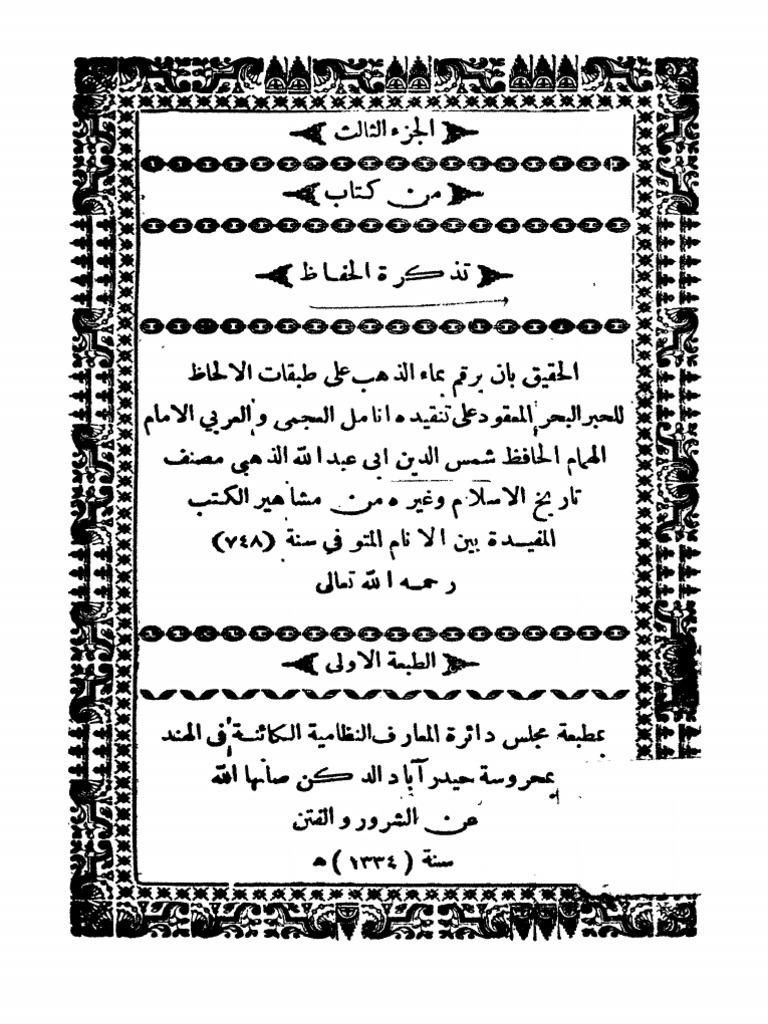 الجزء الثالث
من كتاب
تذكرة الحفاظ
الحقيق بان يرقم بماء الذهب على طبقات الالحاظ
للحبر البحر المعقود على تنقيده انامل العجمى والعربي الامام
الهمام الحافظ شمس الدين ابى عبد الله الذهبى مصنف
تاريخ الاسلام وغيره من مشاهير الكتب
المفيدة بين الانام المتوفي سنة (٧٤٨)
رحمه الله تعالى
الطبعة الاولى
بمطبعة مجلس دائرة المعارف النظامية الكائنة في الهند
بمحروسة حيدرآباد الدكن صانها الله
عن الشرور والفتن
سنة (١٣٣٤) ه